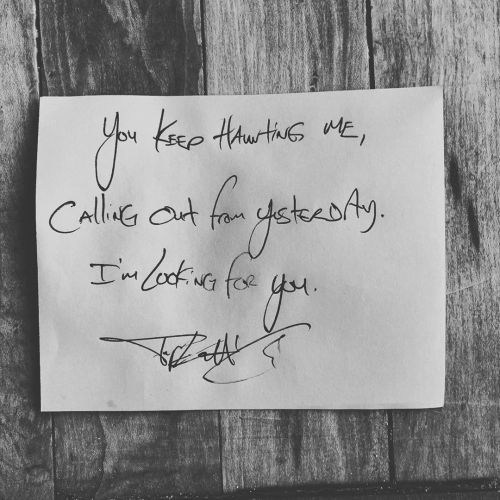 You KEEP HAUNTING ME,
CALLING Out from yESTERDAY.
I'm LOOKiNG foR you.